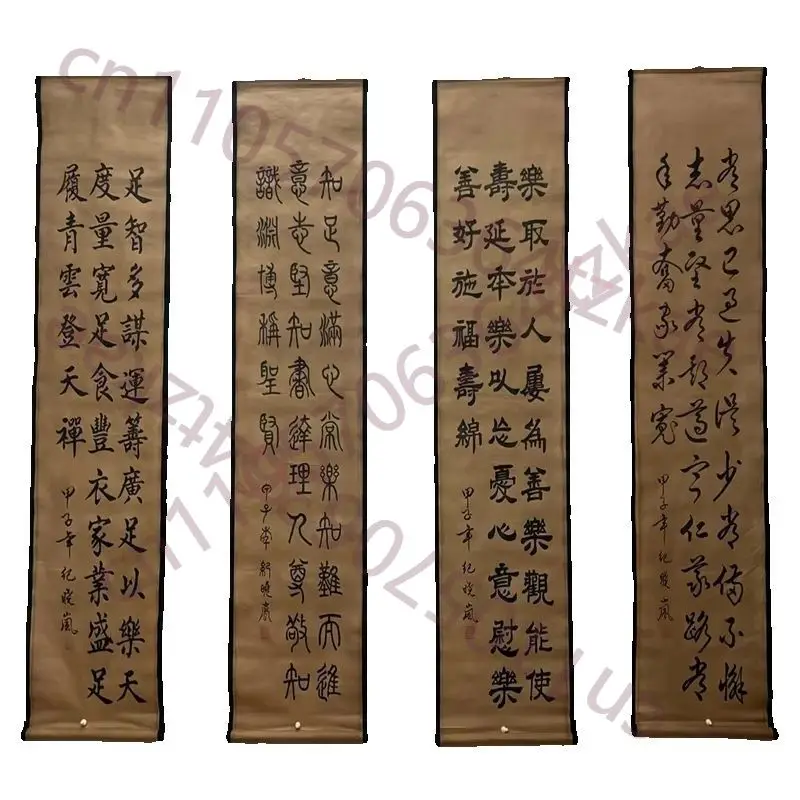 常思己過失誤少常備不懈
志量堅常遵守仁義路常
年勤奮家業寬
甲子年紀曉嵐
樂取於人屢為善樂觀能使
壽延年樂以忘憂心意慰樂
善好施福壽綿
甲子年紀曉嵐
知足意滿心常樂知難而進
意志堅知書達理人尊敬知
識淵博稱聖賢
甲子年紀曉嵐
足智多謀運籌廣足以樂天
度量寬足食豐衣家業盛足
履青雲登天禪
甲子年紀曉嵐